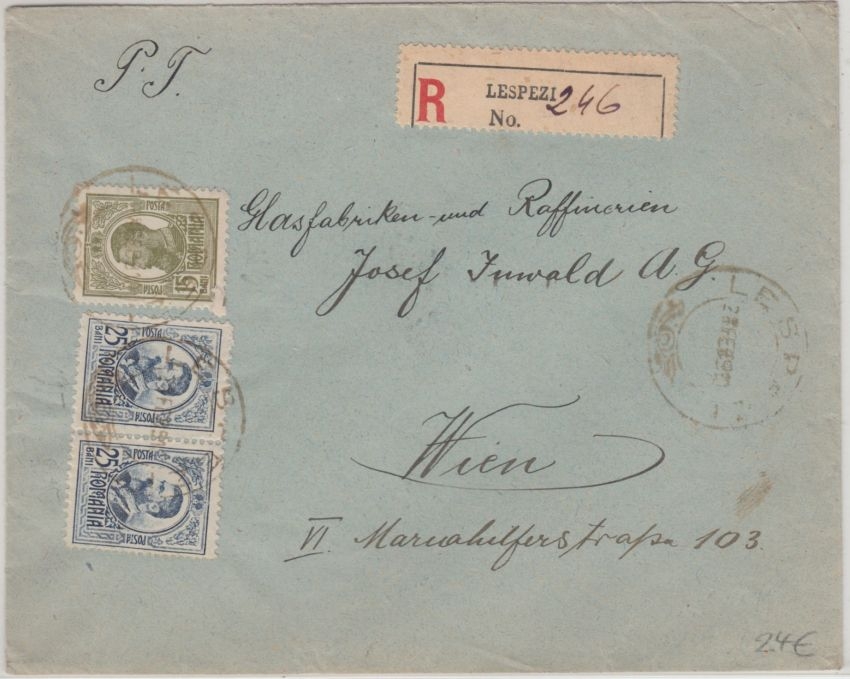 P. T.
R LESPEZI
No. 246
POSTA
ROMANIA
15 BANI
POSTA
Glasfabriken- und Raffinerien
Josef Inwald A. G.
LESP
25 BANI
ROMANIA
POSTA
POSTA
25 BANI
ROMANIA
POSTA
POSTA
Wien
VI. Mariahilferstraße 103.
24€